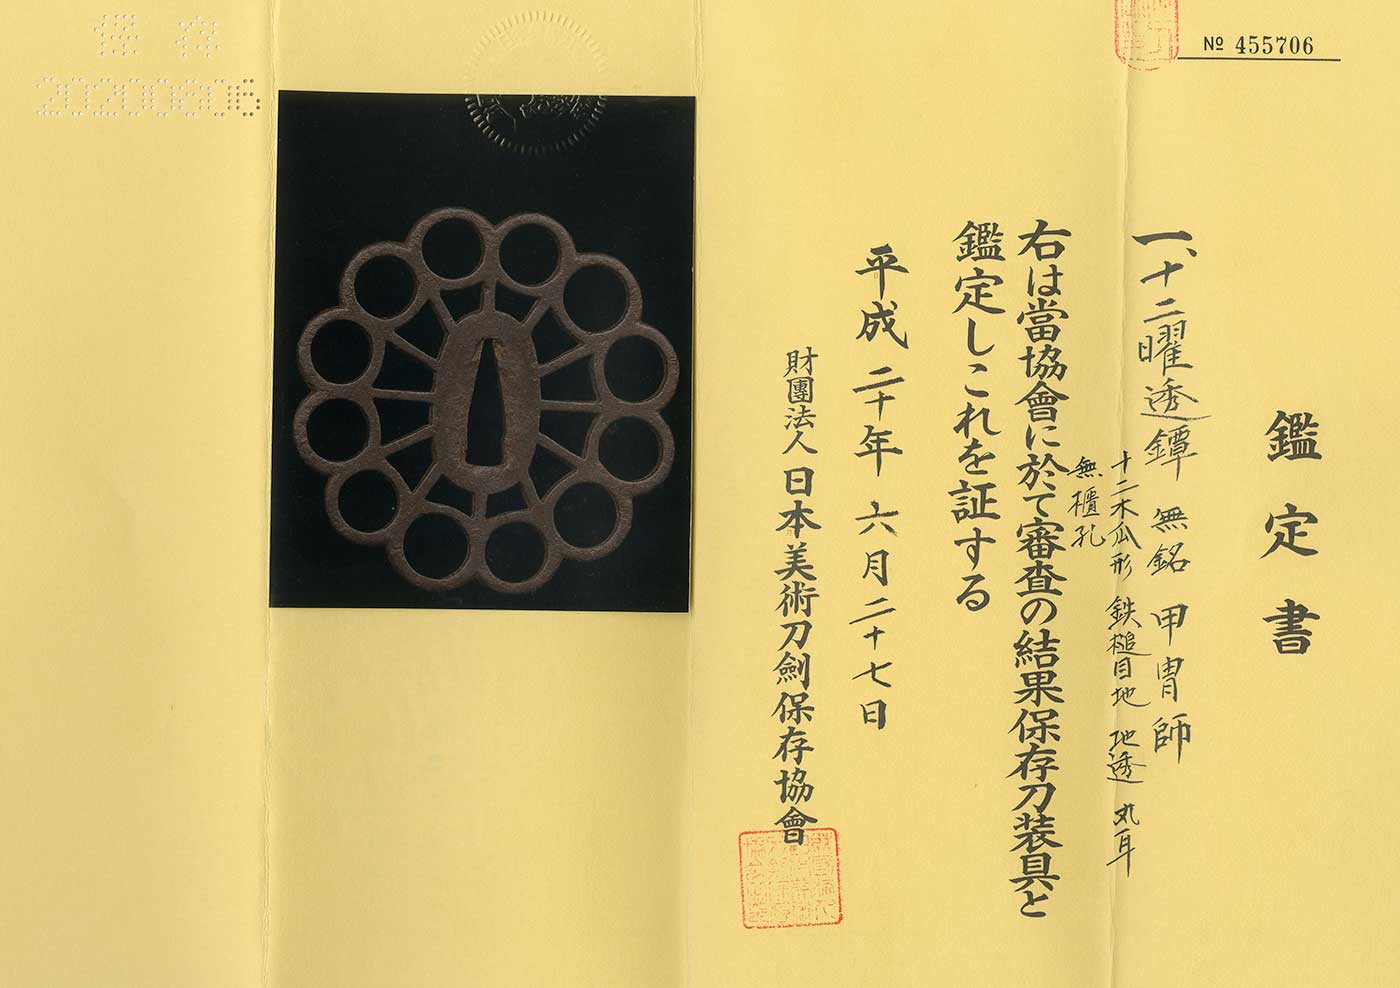 № 455706
鑑定書
一、十二曜透鐔 無銘 甲冑師
十二木瓜形 鉄槌目地 地透 丸耳
無櫃孔
右は當協會に於て審査の結果保存刀装具と
鑑定しこれを証する
平成二十年六月二十七日
財團法人 日本美術刀劍保存協會
保存
20200806